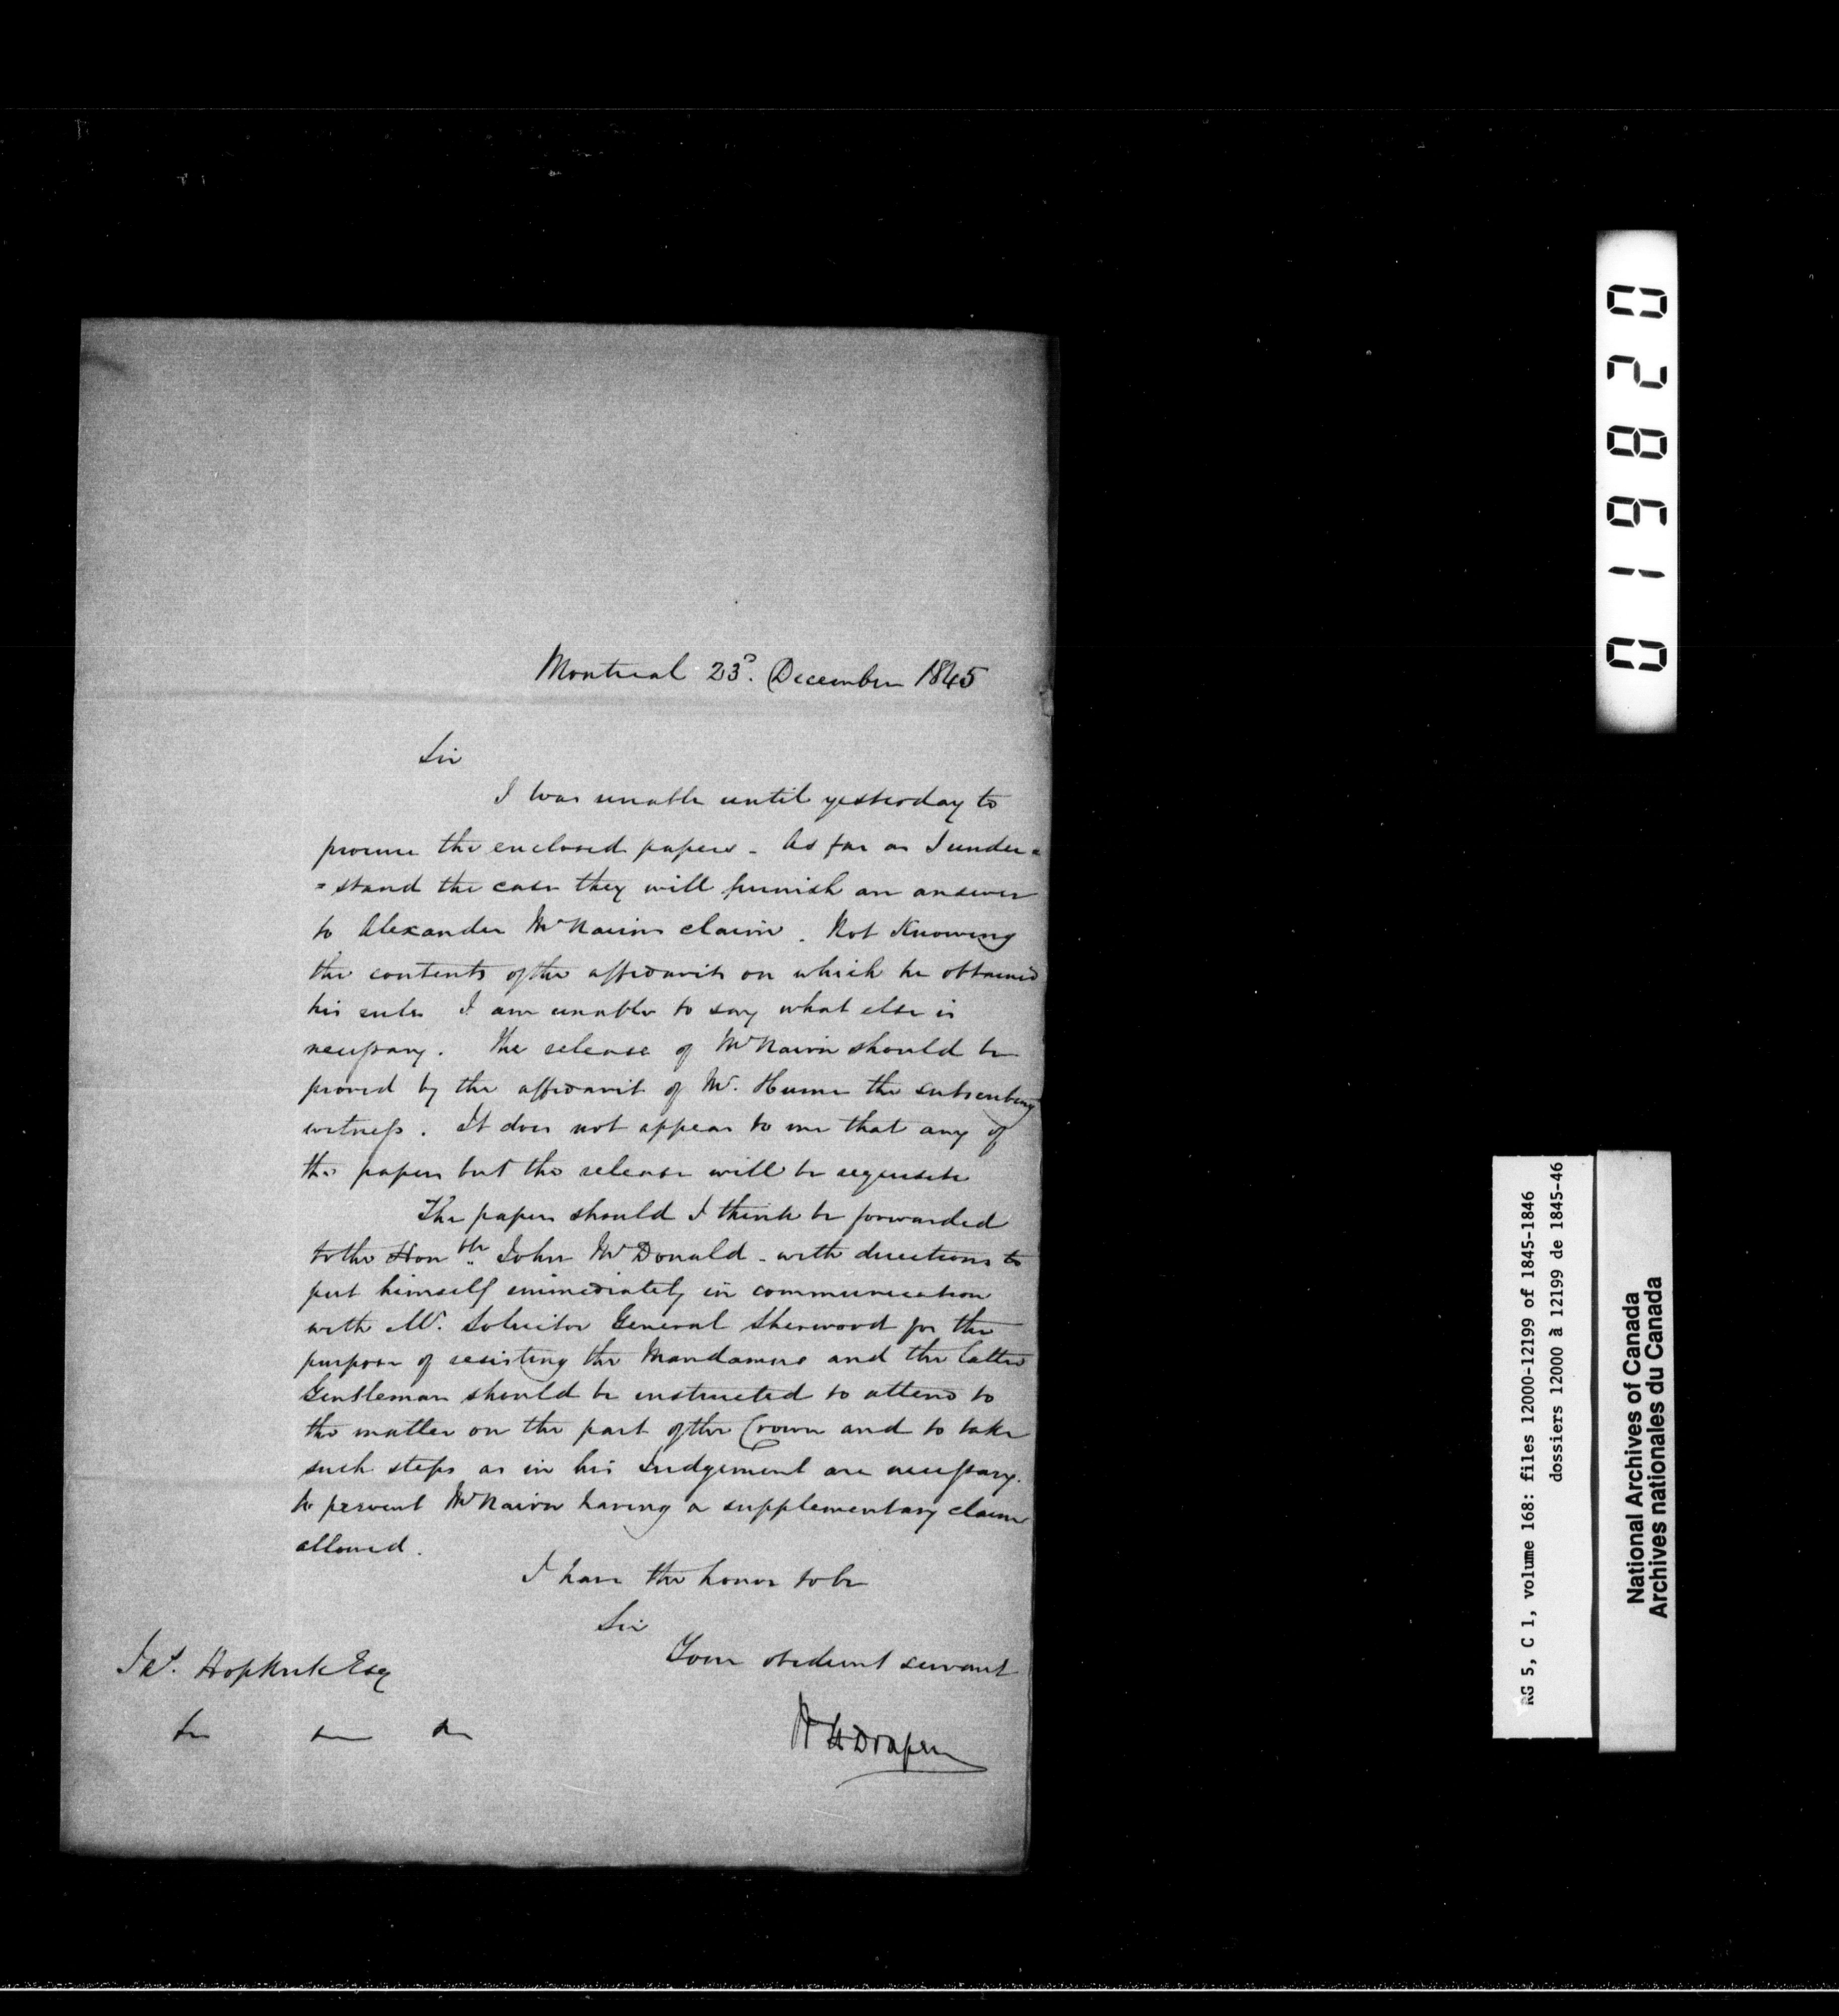 Montreal 23d. December 1845
Sir
I was unable until yesterday to
procure the enclosed papers - As far as I under =
= stand the case they will furnish an answer
to Alexander McNairns claim. Not Knowing
the contents of the affidavits on which he obtained
his rule I am unable to say what else is
necessary. The release of McNairn should be
proved by the affidavit of Mr. Hume the subscribing
witness. It does not appear to me that any of
the papers but the release will be requisite
The papers should I think be forwarded
to the Honble. John McDonald - with directions to
put himself immediately in communication
with Mr. Solicitor General Sherwood for the
purpose of resisting the Mandamus and the latter
Gentleman should be instructed to attend to
the matter on the part of the Crown and to take
such steps as in his Judgement are necessary.
to prevent McNairn having a supplementary claim
allowed.
I have the honor to be
Sir
Your obedient servant
Jas. Hopkirk Esq
WH Draper
019820
RG 5, C 1, volume 168: files 12000-12199 of 1845-1846
dossiers 12000 à 12199 de 1845-46
National Archives of Canada
Archives nationales du Canada